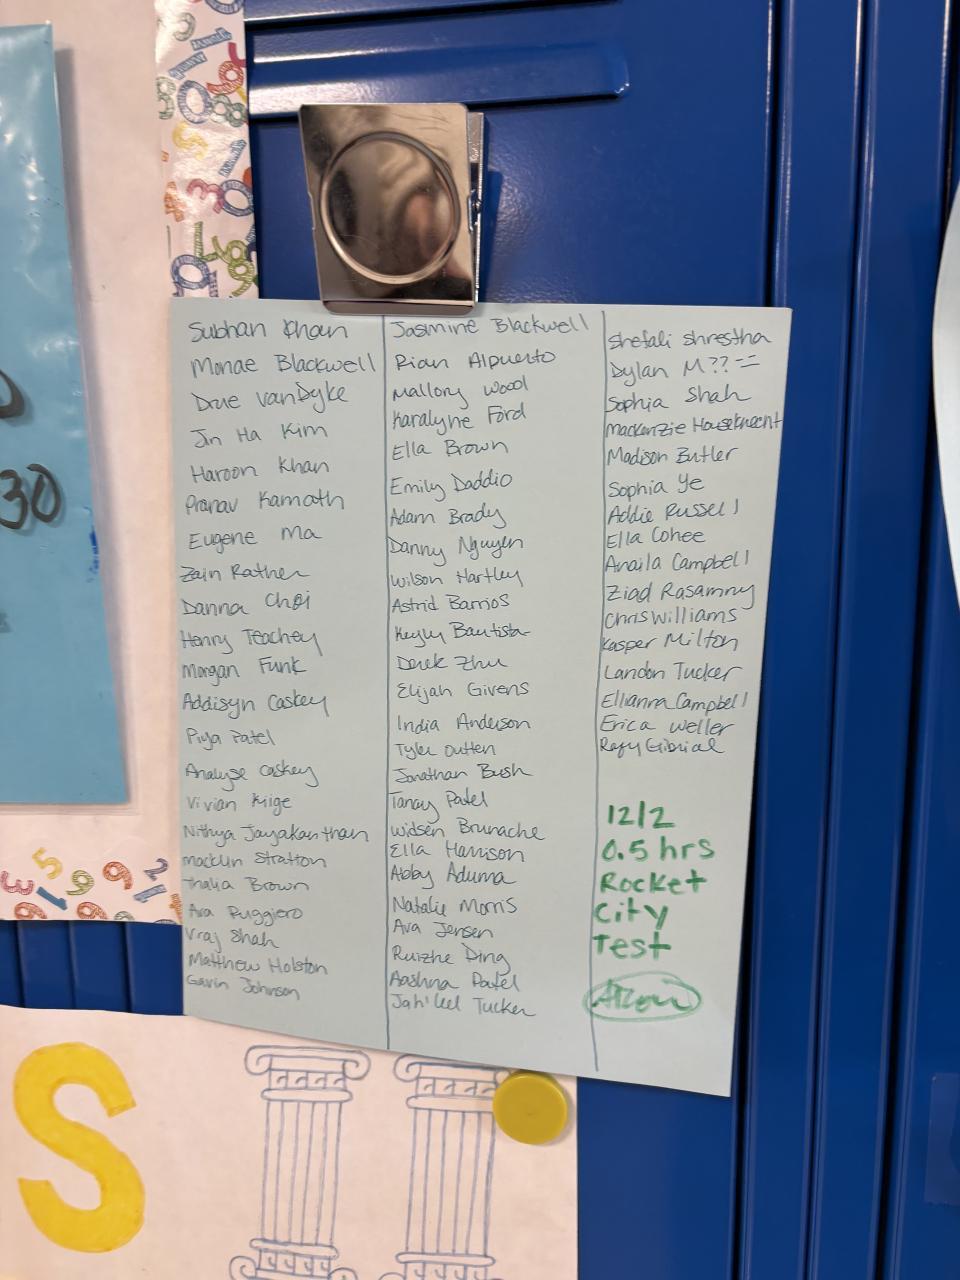 30
Subhan Khan
Monae Blackwell
Drue VanDyke
Jin Ha Kim
Haroon Khan
Pranav Kamath
Eugene Ma
Zain Rather
Danna Choi
Henry Teachey
Morgan Funk
Addisyn Caskey
Piya Patel
Analyse Caskey
Vivian Kiige
Nithya Jayakanthan
Macklin Stratton
Thalia Brown
Ava Ruggiero
Vraj Shah
Matthew Holston
Gavin Johnson
Jasmine Blackwell
Rian Alpuerto
Mallory Wood
Karalyne Ford
Ella Brown
Emily Daddio
Adam Brady
Danny Nguyen
Wilson Hartley
Astrid Barrios
Keyly Bautista
Derek Zhu
Elijah Givens
India Anderson
Tyler Outten
Jonathan Bush
Tanay Patel
Widsen Brunache
Ella Harrison
Abby Aduma
Natalie Morris
Ava Jensen
Ruizhe Ding
Aashna Patel
Jah'kel Tucker
Shefali Shrestha
Dylan M??
Sophia Shah
Mackenzie Houseknecht
Madison Butler
Sophia Ye
Addie Russell
Ella Cohee
Anaila Campbell
Ziad Rasamny
Chris Williams
Kasper Milton
Landon Tucker
Ellianna Campbell
Erica Weller
Rafy
12/2
0.5 hrs
Rocket
City
Test
S